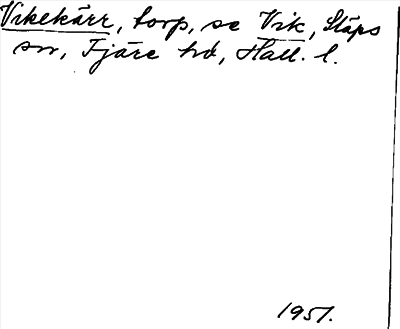 Vikekärr, torp, se Vik, Släps
sn, Fjäre hd, Hall. l.
1951.